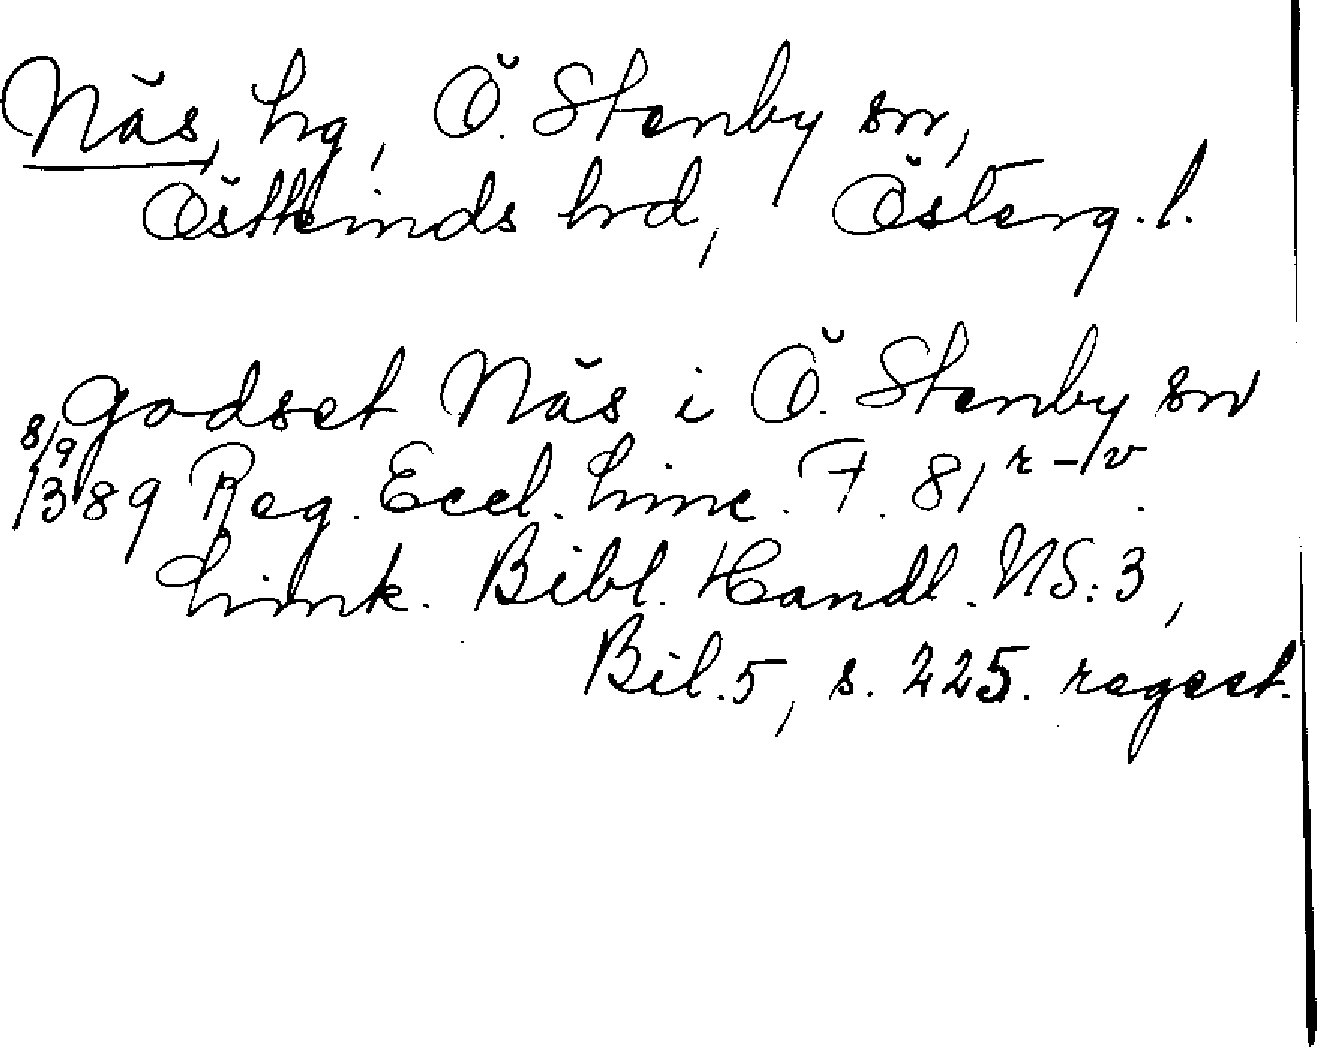 Näs, hg, Ö. Stenby sn,
Östkinds hd, Österg. l.
godset Näs i Ö. Stenby sn
8/9 1389 Reg. Eccl. Linc. F. 81 r-v.
Link. Bibl. Handl. NS: 3,
Bil. 5, s. 225. regest.